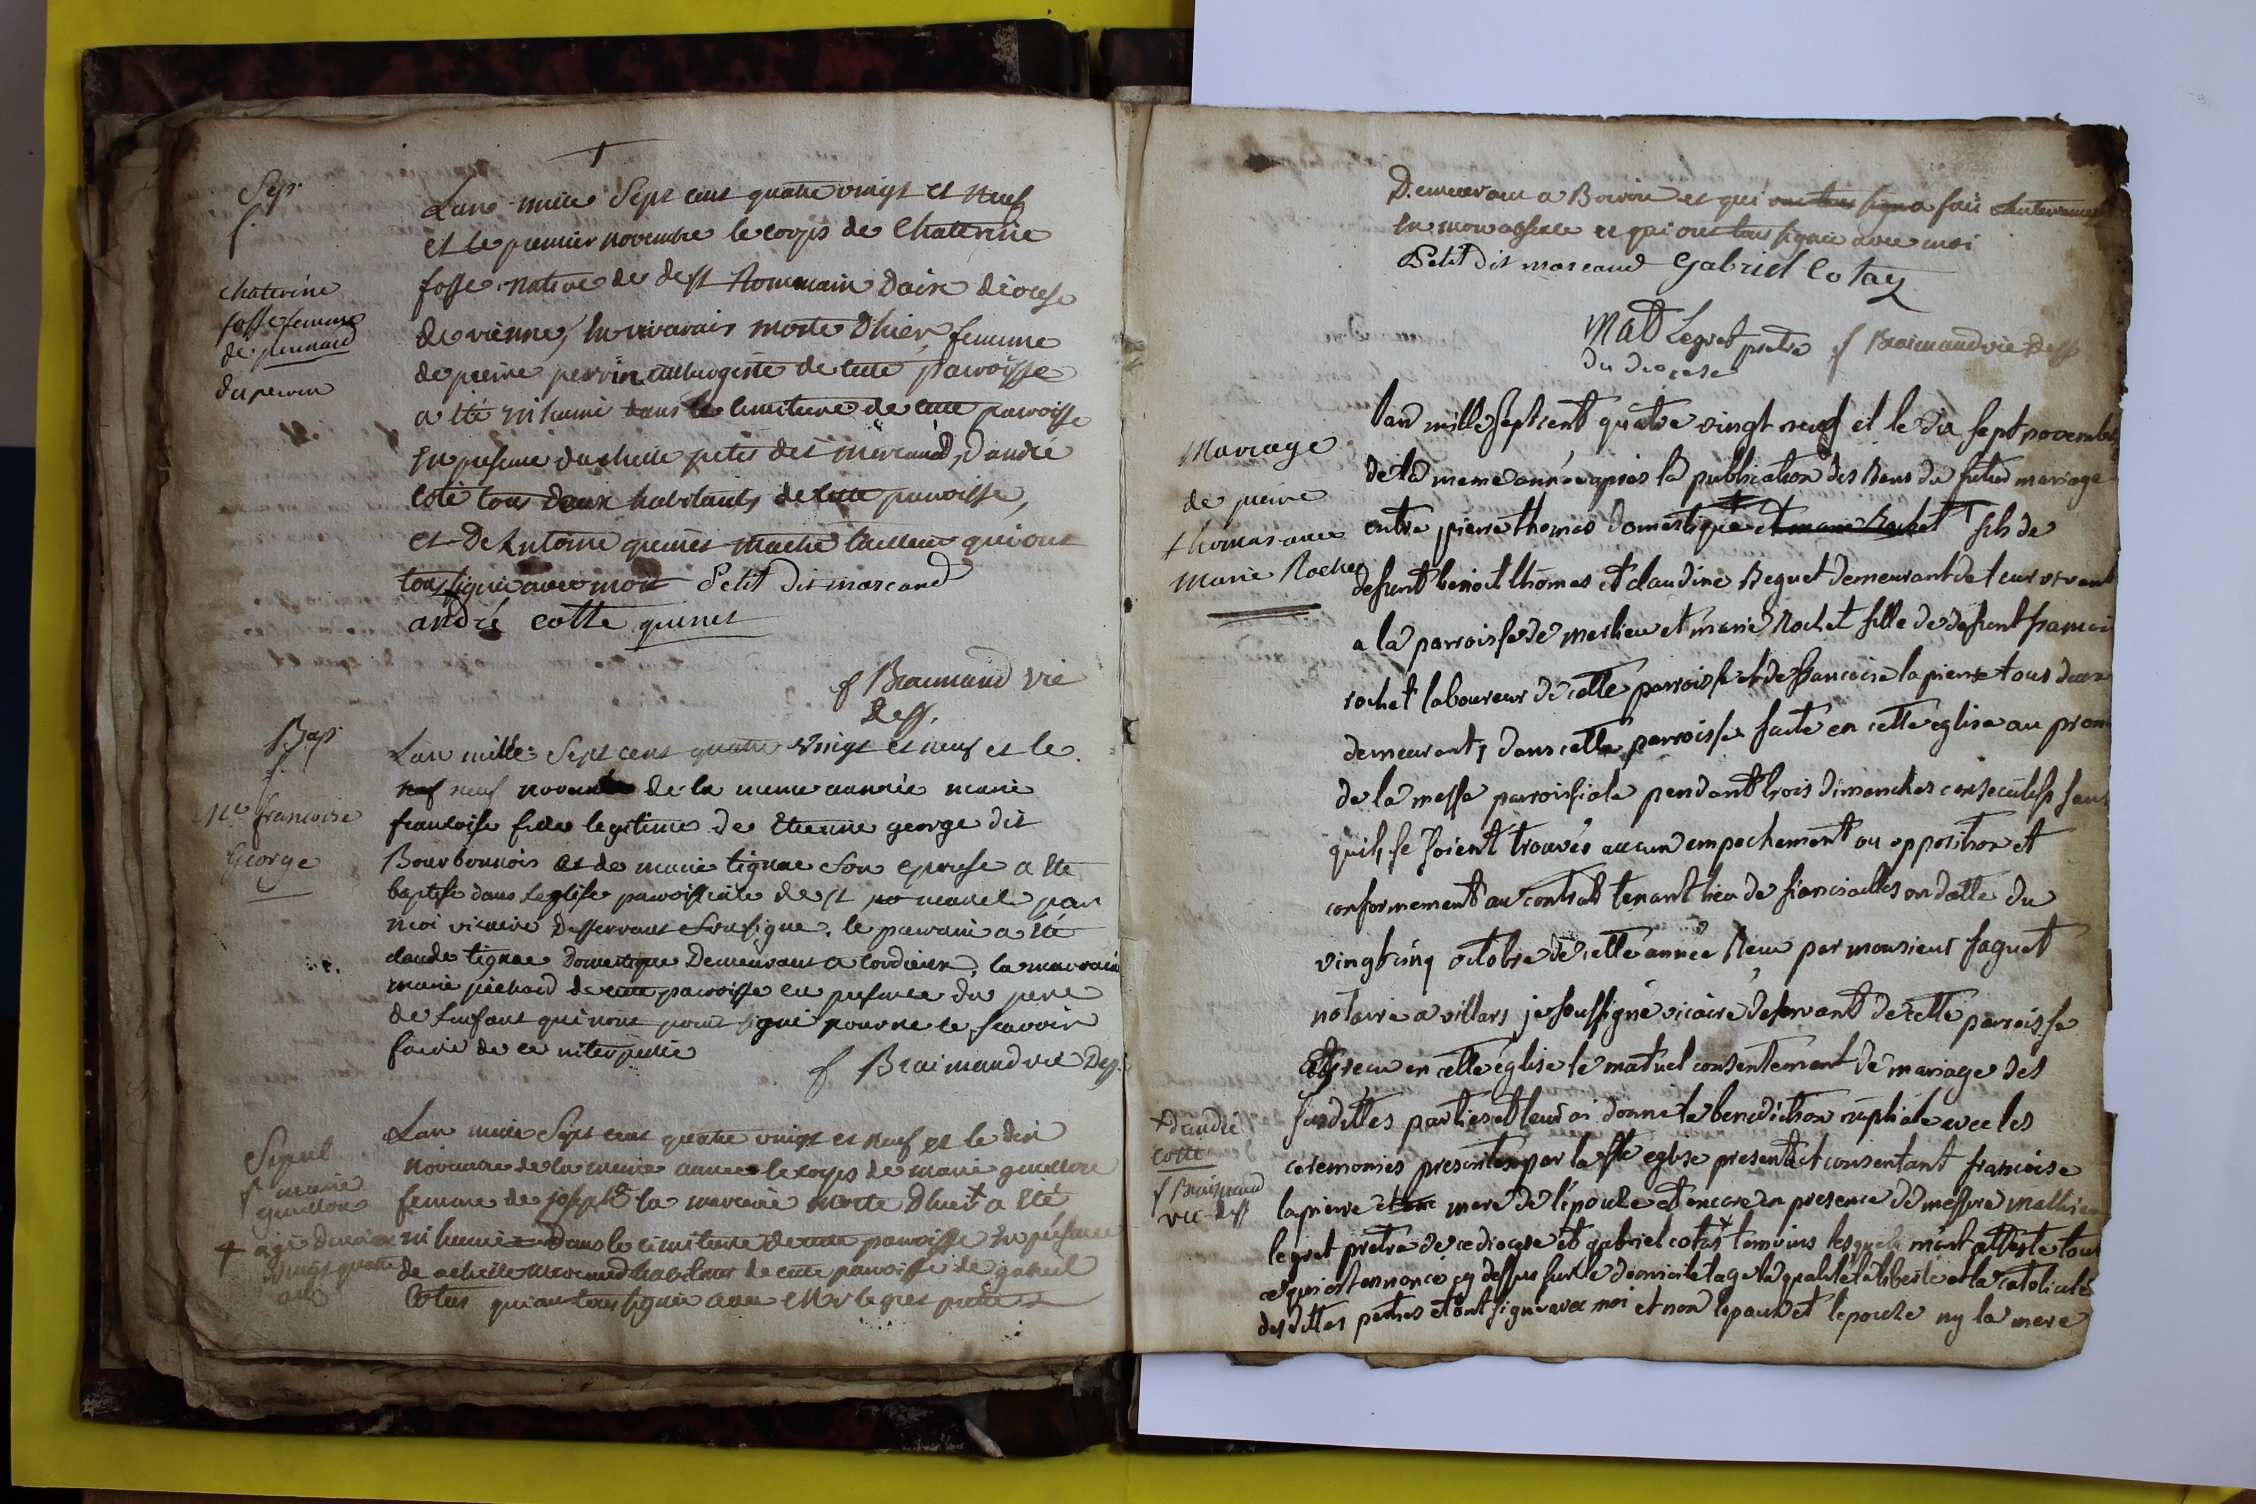 Sep.
f.
chaterine
fosse femme
de pierre
du perrin
Lan mille Sept cent quatre vingt et neuf
et le premier novembre le corps de Chaterine
fosse native de de st Rommain Daire diocese
de vienne, en vivarais morte d'hier, femme
de pierre perrin aubergiste de cette paroisse
a été inhumé dans le cimitiere de cette paroisse
en presence dachille petit dit marcand, dandré
coté tous deux habitants de cette paroisse,
et de Antoine quinet tailleur qui ont
tous signé avec moi Petit dit marcand
andré cotte quinet
f Braimand vic
Dess.
Bap.
f.
Me francoise
George
Lan mille Sept cent quatre vingt et neuf et le
neuf novembre de la meme année marie
francoise fille legitime de Etienne george dit
Bourbonnois et de marie tignac son epouse a été
baptisé dans leglise paroissiale de st marcel par
moi vicaire Desservant soussigné. le parrain a été
claude tignac Domestique Demeurant a Cordieux, la marraine
marie pichard de cette paroisse en presence du pere
de lenfant qui nont point signé pour ne le scavoir
faire de ce interpellé
f Braimand vic Dess.
Sepul
f marie
guillon
+ agé denviron
vingt quatre
ans
Lan mille Sept cent quatre vingt et neuf et le dix
novembre de la meme année le corps de marie guillon
femme de joseph la morte Dhier + a été
inhumé dans le cimitiere de cette paroisse en presence
de achille marcand habitant de cette paroisse de gabriel
Cotas qui ont tous signé avec Mr legret pretre
Demeurant a Bouvin et qui ont tous signé a fait lenterrement
en mon absence et qui ont tous signé avec moi
Petit dit marcand Gabriel Cotaz
Mat Legret pretre f Braimand vic Dess
du diocese
Mariage
de pierre
thomas avec
Marie Rochet
lan mille sept cent quatre vingt neuf et le dix sept novembre
de la meme année apres la publication des Bans du futur mariage
entre pierre thomas domestique et marie Rochet fils de
defunt benoit thomas et claudine Beguet demeurant de leur vivant
a la parroisse de merlieu et marie Rochet fille de defunt francois
rochet laboureur de cette parroisse et de francoise lapierre tous deux
demeurants dans cette parroisse faite en cette eglise au prone
de la messe parroissiale pendant trois dimanches consecutifs sans
quils se soient trouvés aucun empechement ou opposition et
conformement au contrat tenant lieu de fiancailles en datte du
vingt cinq octobre de cette année Recu par monsieur faguet
notaire a villars je soussigné vicaire deservant de cette parroisse
ay recu en cette église le mutuel consentement de mariage des
susdittes parties et leur ai donné la benediction nuptiale avec les
ceremonies prescrites par la ste eglise present et consentant francoise
lapierre mere de l'épouse et encore en presence de messire mathieu
legret pretre de ce diocese et gabriel cotas + temoins lesquels m'ont attesté tout
ce qui est ennoncé cy dessus sur le domicile lage la qualité la liberté et la catolicité
des dittes parties et ont signé avec moi et non lepoux et lepouse ny la mere
+ dandré
cotte
f Braimand
vic dess